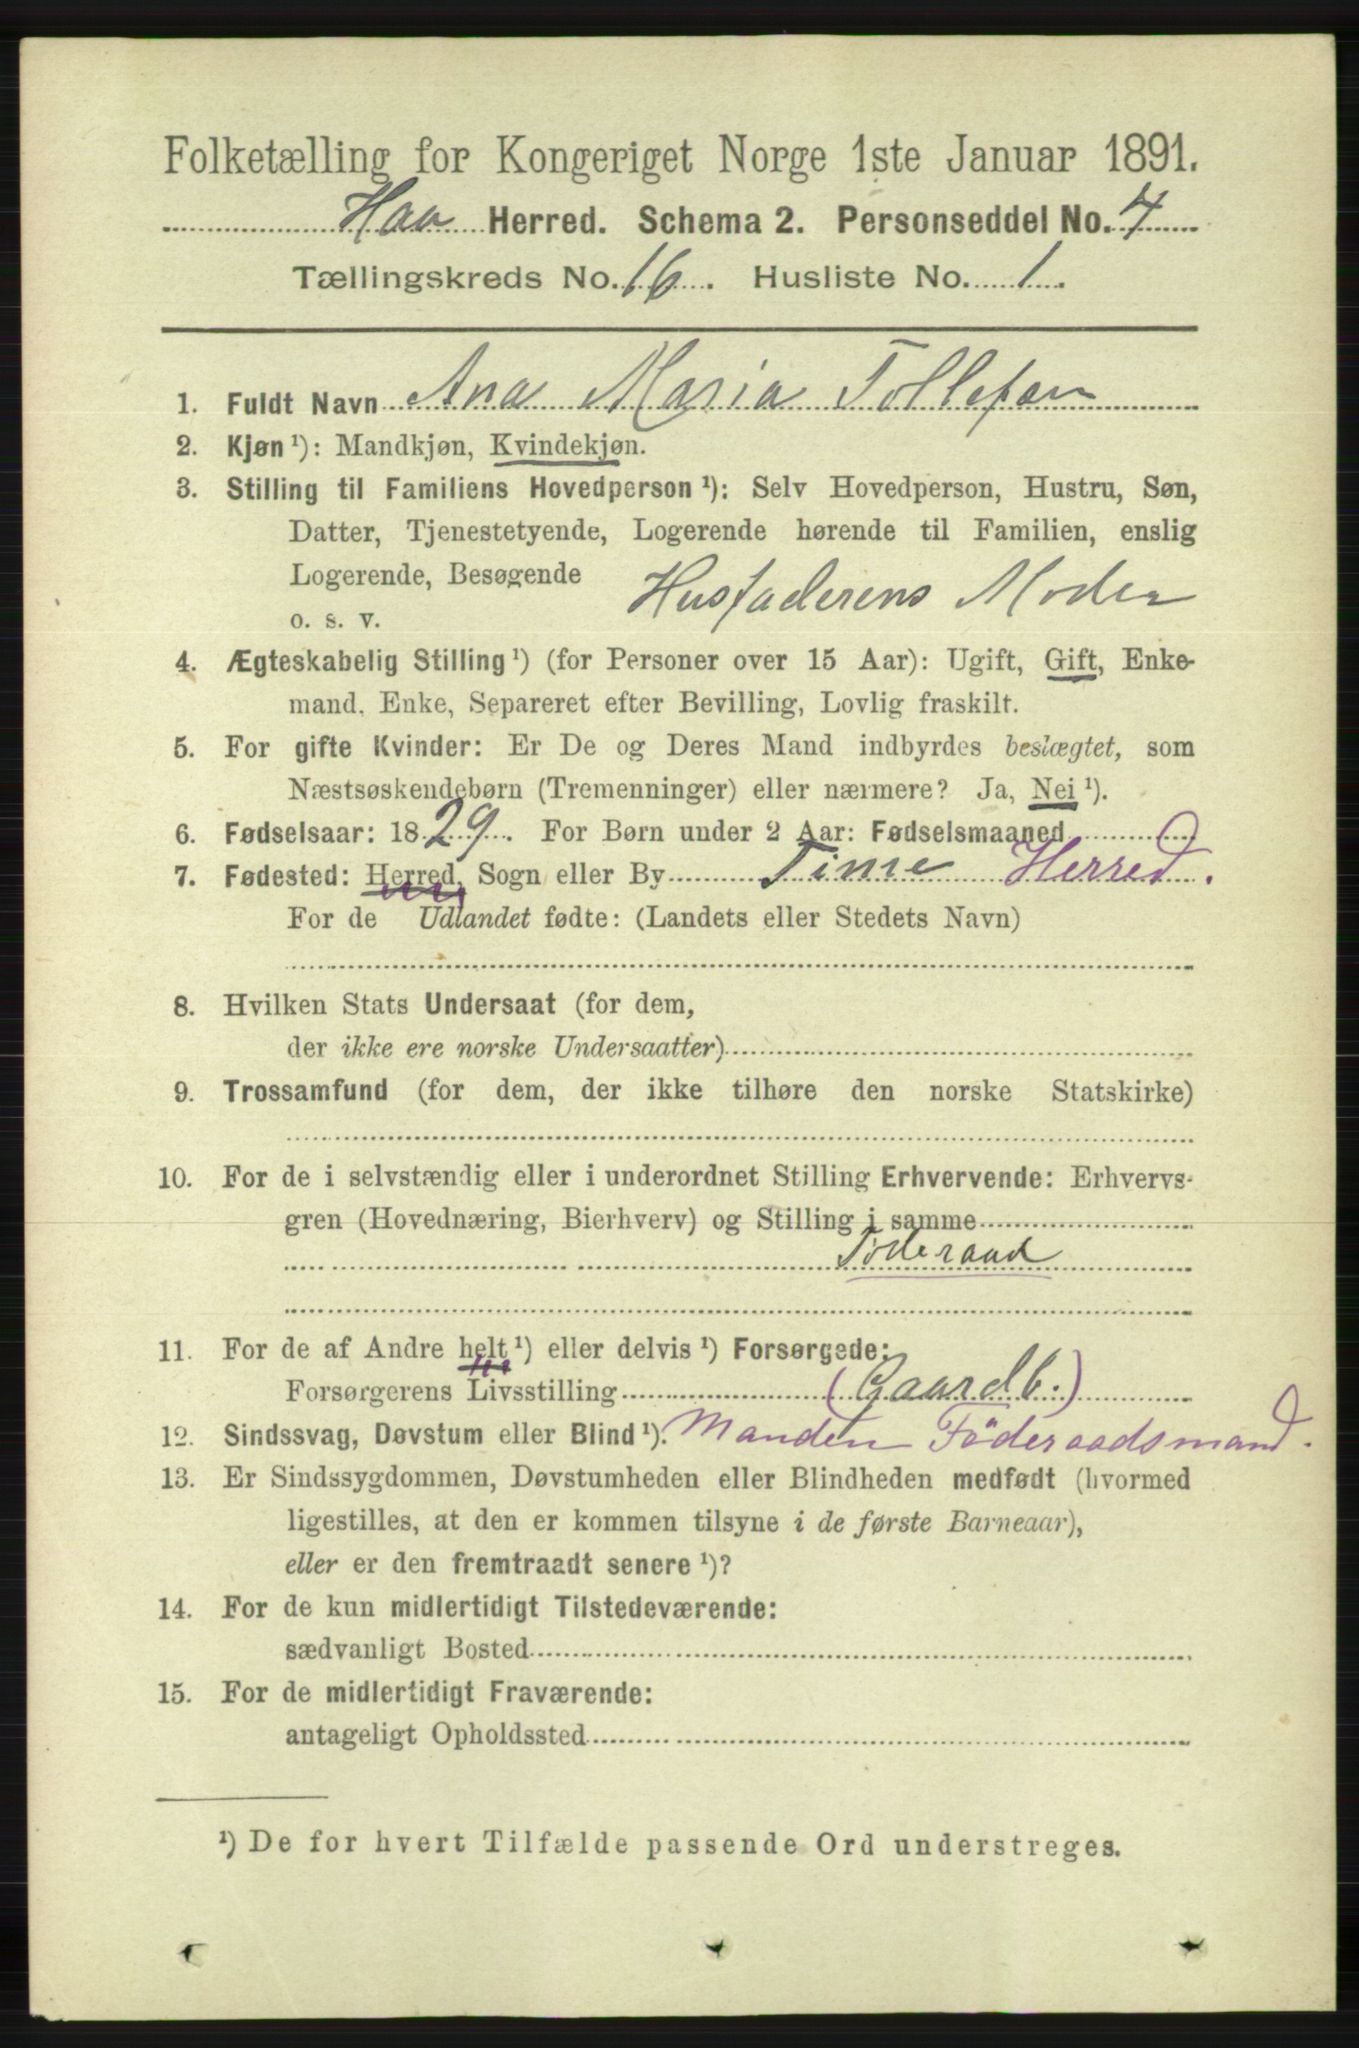 Folketælling for Kongeriget Norge 1ste Januar 1891.
Haa Herred. Schema 2. Personseddel No. 4
Tællingskreds No. 16. Husliste No. 1.
1. Fuldt Navn Ana Maria Tollefsen
2. Kjøn ¹): Mandkjøn, Kvindekjøn.
3. Stilling til Familiens Hovedperson ¹): Selv Hovedperson, Hustru, Søn,
Datter, Tjenestetyende, Logerende hørende til Familien, enslig
Logerende, Besøgende
o. s. v. Husfaderens Moder
4. Ægteskabelig Stilling ¹) (for Personer over 15 Aar): Ugift, Gift, Enke-
mand, Enke, Separeret efter Bevilling, Lovlig fraskilt.
5. For gifte Kvinder: Er De og Deres Mand indbyrdes beslægtet, som
Næstsøskendebørn (Tremenninger) eller nærmere? Ja, Nei ¹).
6. Fødselsaar: 1829. For Børn under 2 Aar: Fødselsmaaned
7. Fødested: Herred, Sogn eller By Time Herred.
For de Udlandet fødte: (Landets eller Stedets Navn)
8. Hvilken Stats Undersaat (for dem,
der ikke ere norske Undersaatter)
9. Trossamfund (for dem, der ikke tilhøre den norske Statskirke)
10. For de i selvstændig eller i underordnet Stilling Erhvervende: Erhvervs-
gren (Hovednæring, Bierhverv) og Stilling i samme
Föderaad
11. For de af Andre helt ¹) eller delvis ¹) Forsørgede:
Forsørgerens Livsstilling (Gaardb.)
12. Sindssvag, Døvstum eller Blind ¹). Manden Föderaadsmand.
13. Er Sindssygdommen, Døvstumheden eller Blindheden medfødt (hvormed
ligestilles, at den er kommen tilsyne i de første Barneaar),
eller er den fremtraadt senere ¹)?
14. For de kun midlertidigt Tilstedeværende:
sædvanligt Bosted
15. For de midlertidigt Fraværende:
antageligt Opholdssted
¹) De for hvert Tilfælde passende Ord understreges.